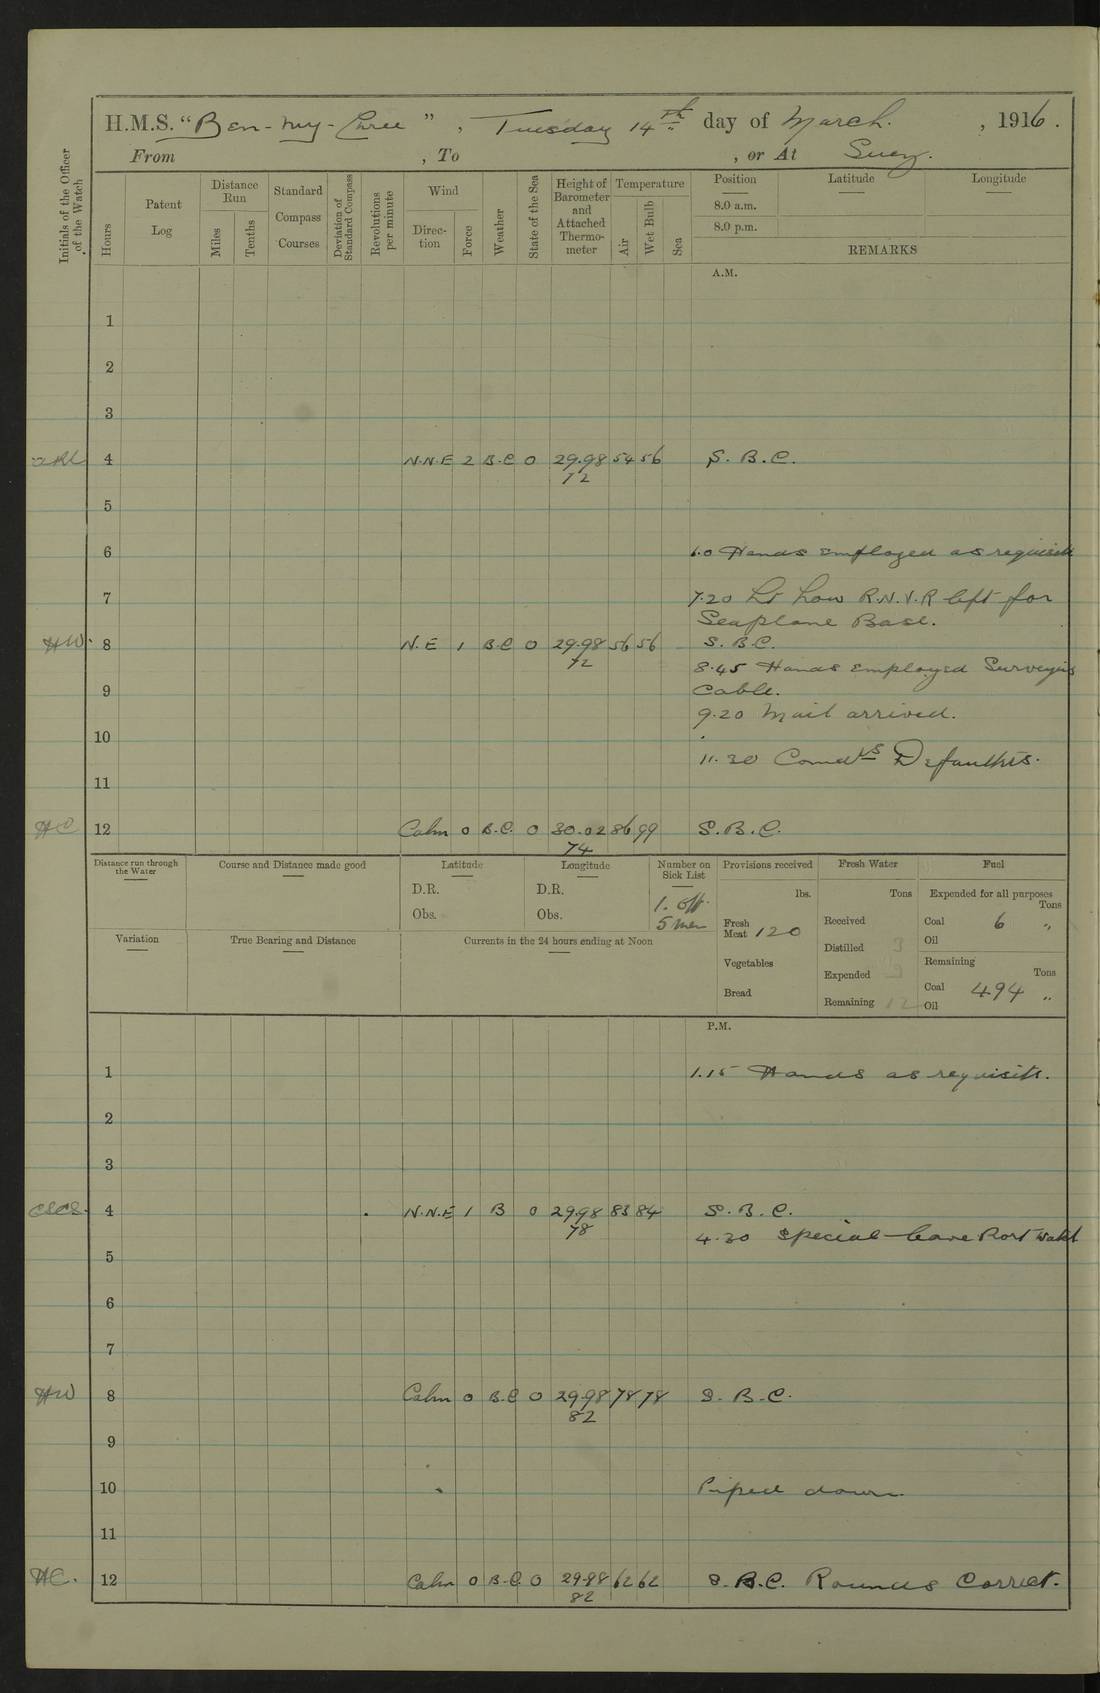 H.M.S. "Ben-my-Chree", Tuesday 14th day of March, 1916.
From , To , or At Suez.
Initials of the Officer of the Watch
Hours
Patent Log
Distance Run
Miles
Tenths
Standard Compass Courses
Deviation of Standard Compass
Revolutions per minute
Wind
Direction
Force
Weather
State of the Sea
Height of Barometer and Attached Thermometer
Temperature
Air
Wet Bulb
Sea
Position
Latitude
Longitude
8.0 a.m.
8.0 p.m.
REMARKS
A.M.
1
2
3
4 N.N.E 2 B.C 0 29.98 54 56 S. B.C.
72
5
6 6.0 Hands employed as requisite
7 7.20 Lt Low R.N.V.R left for
Seaplane Base.
HW. 8 N.E 1 B.C 0 29.98 56 56 S. B.C.
72
8.45 Hands employed Surveying
9 Cable.
9.20 Mail arrived.
10
11.30 Comdts Defaulters.
11
HC 12 Calm 0 B.C. 0 30.02 86 99 S.B.C.
74
Distance run through the Water
Course and Distance made good
Latitude
D.R.
Obs.
Longitude
D.R.
Obs.
Number on Sick List
1. Off.
5 men
Provisions received
lbs.
Fresh Meat 120
Vegetables
Bread
Fresh Water
Tons
Received
Distilled 3
Expended 3
Remaining 12
Fuel
Expended for all purposes
Tons
Coal 6 "
Oil
Remaining
Tons
Coal 494 "
Oil
Variation
True Bearing and Distance
Currents in the 24 hours ending at Noon
P.M.
1 1.15 Hands as requisite.
2
3
4 N.N.E 1 B 0 29.98 83 84 S. B. C.
78
4.30 Special leave Port Watch
5
6
7
HW 8 Calm 0 B.C 0 29.98 78 78 S. B.C.
82
9
10 Piped down.
11
HC. 12 Calm 0 B.C. 0 29.98 62 62 S. B.C. Rounds Correct.
82